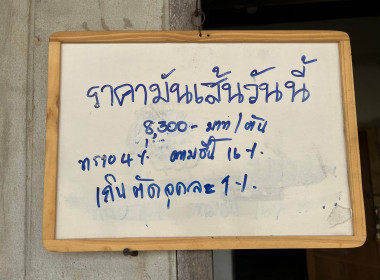 ราคามันเส้นวันนี้
8,300- บาท/ตัน
ทราย 4% ความชื้น 16%
เกินตัดจุดละ 1%